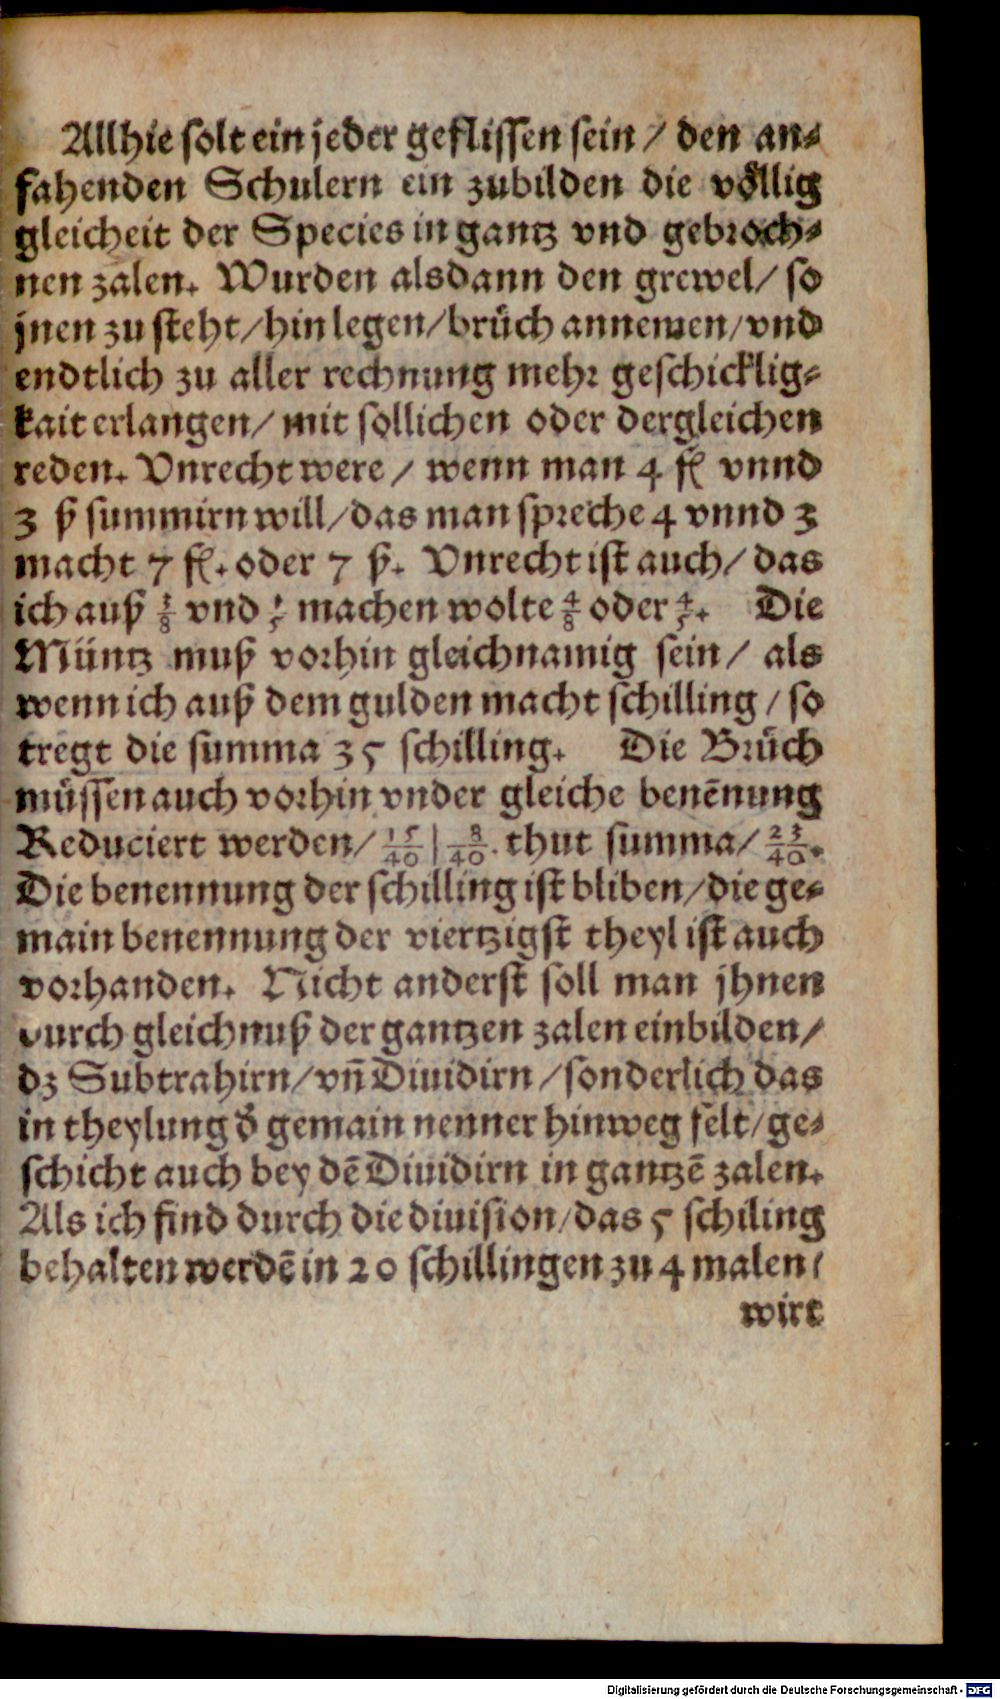 Allhie solt ein jeder geflissen sein / den an⸗
fahenden Schulern ein zubilden die voͤllig
gleicheit der Species in gantz vnd gebroch⸗
nen zalen. Wurden alsdann den grewel/ so
jnen zu steht/hin legen/bruͤch annemen/vnd
endtlich zu aller rechnung mehr geschicklig⸗
kait erlangen/ mit sollichen oder dergleichen
reden. Vnrecht were / wenn man 4 fl vnnd
3 ß summirn will/das man spreche 4 vnnd 3
macht 7 fl. oder 7 ß. Vnrecht ist auch/ das
ich auß 3/8 vnd 1/5 machen wolte 4/8 oder 4/5. Die
Müntz muß vorhin gleichnamig sein/ als
wenn ich auß dem gulden macht schilling / so
tregt die summa 35 schilling. Die Bruͤch
muͤssen auch vorhin vnder gleiche benēnung
Reduciert werden/ 15/40 | 8/40. thut summa/ 23/40.
Die benennung der schilling ist bliben/die ge⸗
main benennung der viertzigst theyl ist auch
vorhanden. Nicht anderst soll man jhnen
durch gleichnuß der gantzen zalen einbilden/
dz Subtrahirn/vn̄ Diuidirn /sonderlich das
in theylung d̓ gemain nenner hinweg felt/ge⸗
schicht auch bey dē Diuidirn in gantzē zalen.
Als ich find durch die diuision/das 5 schiling
behalten werdē in 20 schillingen zu 4 malen/
wirt
Digitalisierung gefördert durch die Deutsche Forschungsgemeinschaft - DFG